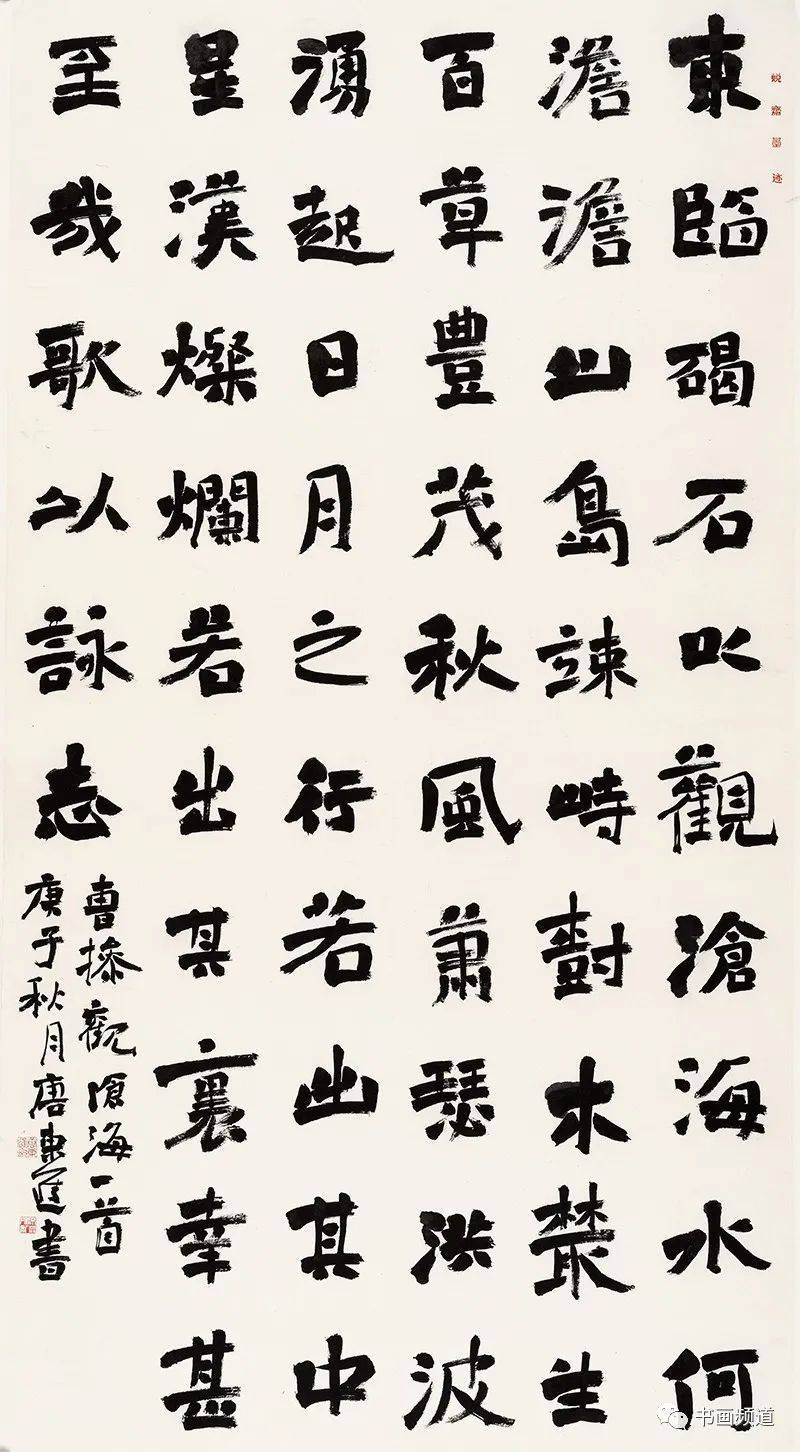 蜕齋墨迹
東臨碣石以觀滄海水何
澹澹山島竦峙樹木叢生
百草豊茂秋風蕭瑟洪波
湧起日月之行若出其中
星漢燦爛若出其裏幸甚
至哉歌以詠志
曹操觀滄海一首
庚子秋月唐東書
书画频道